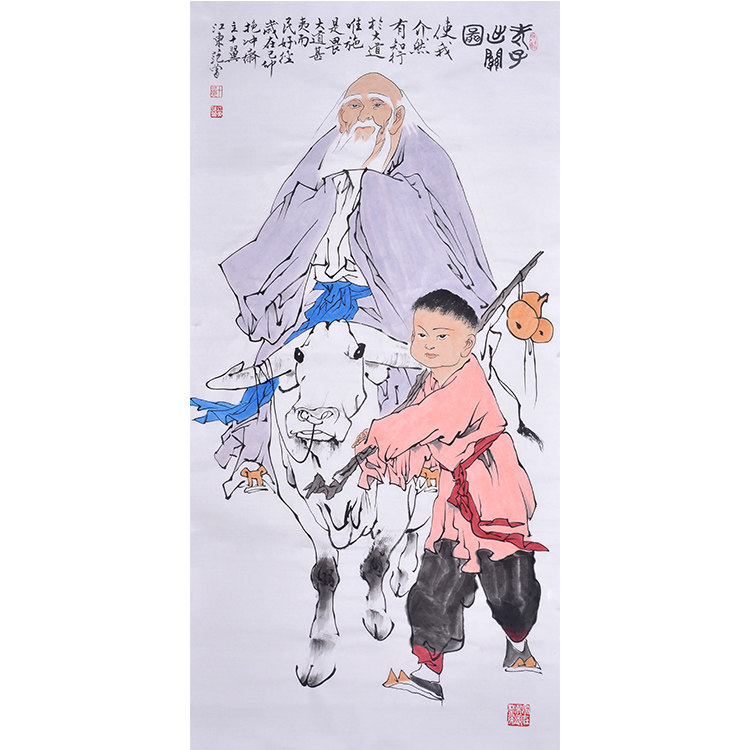 老子
出關
圖
使我
介然
有知行
於大道
唯施
是畏
大道甚
夷而
民好徑
歲在己卯
抱冲齋
主十翼
江東范曾